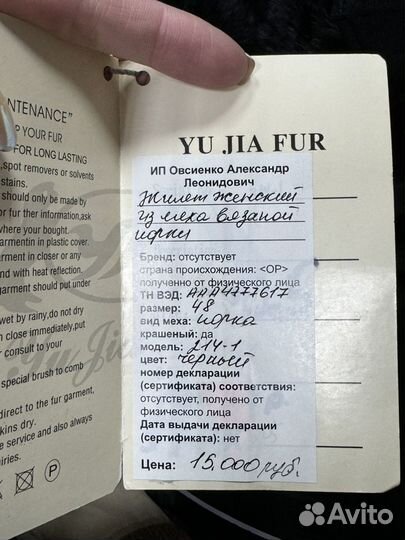 NTENANCE"
P YOUR FUR
FOR LONG LASTING
spot removers or solvents
stains.
should only be made by
or fur ther information,ask
where your bought.
garmentin in plastic cover.
garment in closer or any
and with heat reflection.
garment should put under
wet by rainy,do not dry
n close immediately,put
r consult to your
special brush to comb
direct to the fur garment,
kins dry.
e service and also always
iries.
YU JIA FUR
ИП Овсиенко Александр
Леонидович
Жилет женский
из меха вязаной
норки
Бренд: отсутствует
страна происхождения: <ОР>
получено от физического лица
ТН ВЭД: ААА4777617
размер: 48
вид меха: норка
крашеный: да
модель: 214-1
цвет: черный
номер декларации
(сертификата) соответствия:
отсутствует, получено от
физического лица
Дата выдачи декларации
(сертификата): нет
Цена: 15.000 руб.
Avito